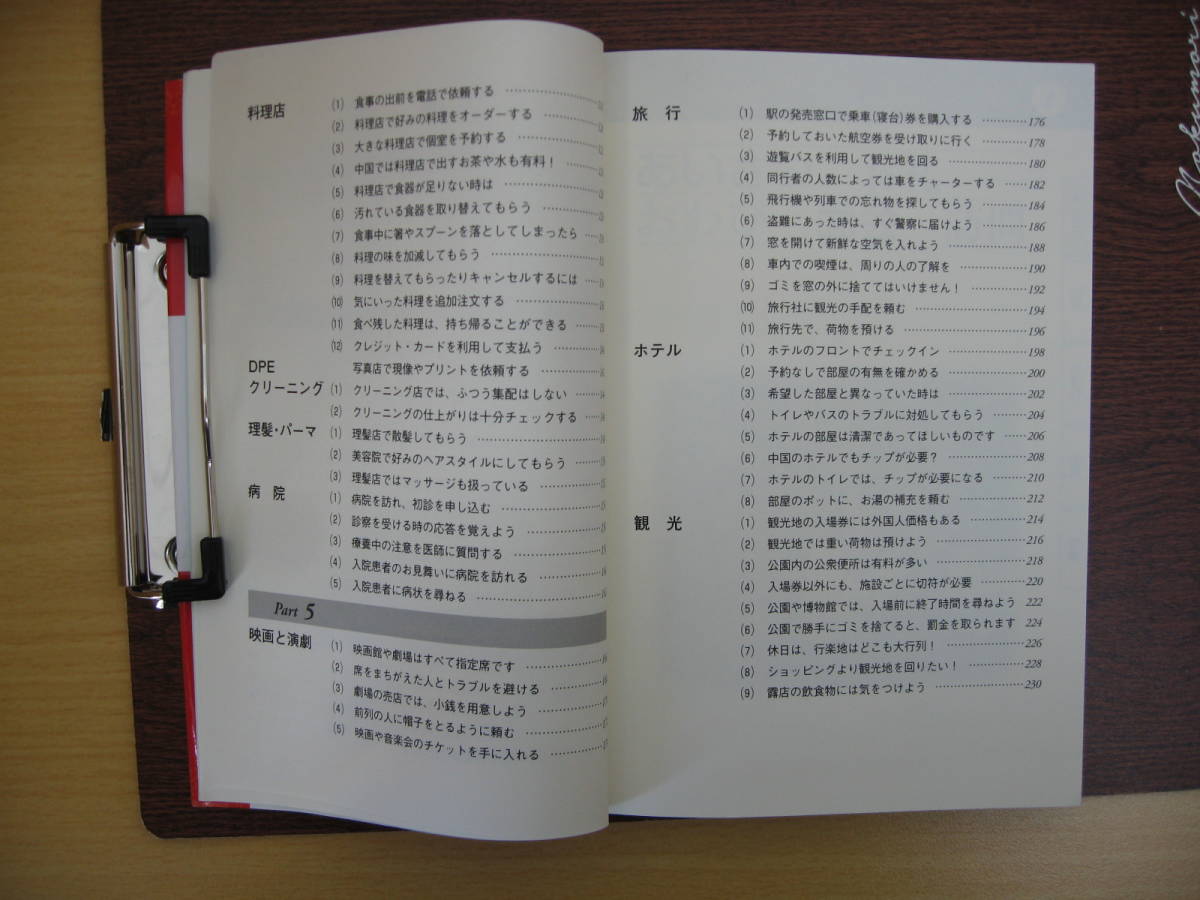 料理店
(1) 食事の出前を電話で依頼する
(2) 料理店で好みの料理をオーダーする
(3) 大きな料理店で個室を予約する
(4) 中国では料理店で出すお茶や水も有料！
(5) 料理店で食器が足りない時は
(6) 汚れている食器を取り替えてもらう
(7) 食事中に箸やスプーンを落としてしまったら
(8) 料理の味を加減してもらう
(9) 料理を替えてもらったりキャンセルするには
(10) 気にいった料理を追加注文する
(11) 食べ残した料理は、持ち帰ることができる
(12) クレジット・カードを利用して支払う
DPE 写真店で現像やプリントを依頼する
クリーニング (1) クリーニング店では、ふつう集配はしない
(2) クリーニングの仕上がりは十分チェックする
理髪・パーマ (1) 理髪店で散髪してもらう
(2) 美容院で好みのヘアスタイルにしてもらう
(3) 理髪店ではマッサージも扱っている
病 院 (1) 病院を訪れ、初診を申し込む
(2) 診察を受ける時の応答を覚えよう
(3) 療養中の注意を医師に質問する
(4) 入院患者のお見舞いに病院を訪れる
(5) 入院患者に病状を尋ねる
Part 5
映画と演劇 (1) 映画館や劇場はすべて指定席です
(2) 席をまちがえた人とトラブルを避ける
(3) 劇場の売店では、小銭を用意しよう
(4) 前列の人に帽子をとるように頼む
(5) 映画や音楽会のチケットを手に入れる
旅 行 (1) 駅の発売窓口で乗車(寝台)券を購入する ……………176
(2) 予約しておいた航空券を受け取りに行く ……………178
(3) 遊覧バスを利用して観光地を回る ……………180
(4) 同行者の人数によっては車をチャーターする ……182
(5) 飛行機や列車での忘れ物を探してもらう ……………184
(6) 盗難にあった時は、すぐ警察に届けよう ……………186
(7) 窓を開けて新鮮な空気を入れよう ……………188
(8) 車内での喫煙は、周りの人の了解を ……………190
(9) ゴミを窓の外に捨ててはいけません！ ……………192
(10) 旅行社に観光の手配を頼む ……………194
(11) 旅行先で、荷物を預ける ……………196
ホテル (1) ホテルのフロントでチェックイン ……………198
(2) 予約なしで部屋の有無を確かめる ……………200
(3) 希望した部屋と異なっていた時は ……………202
(4) トイレやバスのトラブルに対処してもらう ……………204
(5) ホテルの部屋は清潔であってほしいものです ……206
(6) 中国のホテルでもチップが必要？ ……………208
(7) ホテルのトイレでは、チップが必要になる ……………210
(8) 部屋のポットに、お湯の補充を頼む ……………212
観 光 (1) 観光地の入場券には外国人価格もある ……………214
(2) 観光地では重い荷物は預けよう ……………216
(3) 公園内の公衆便所は有料が多い ……………218
(4) 入場券以外にも、施設ごとに切符が必要 ……………220
(5) 公園や博物館では、入場前に終了時間を尋ねよう 222
(6) 公園で勝手にゴミを捨てると、罰金を取られます 224
(7) 休日は、行楽地はどこも大行列！ ……………226
(8) ショッピングより観光地を回りたい！ ……………228
(9) 露店の飲食物には気をつけよう ……………230